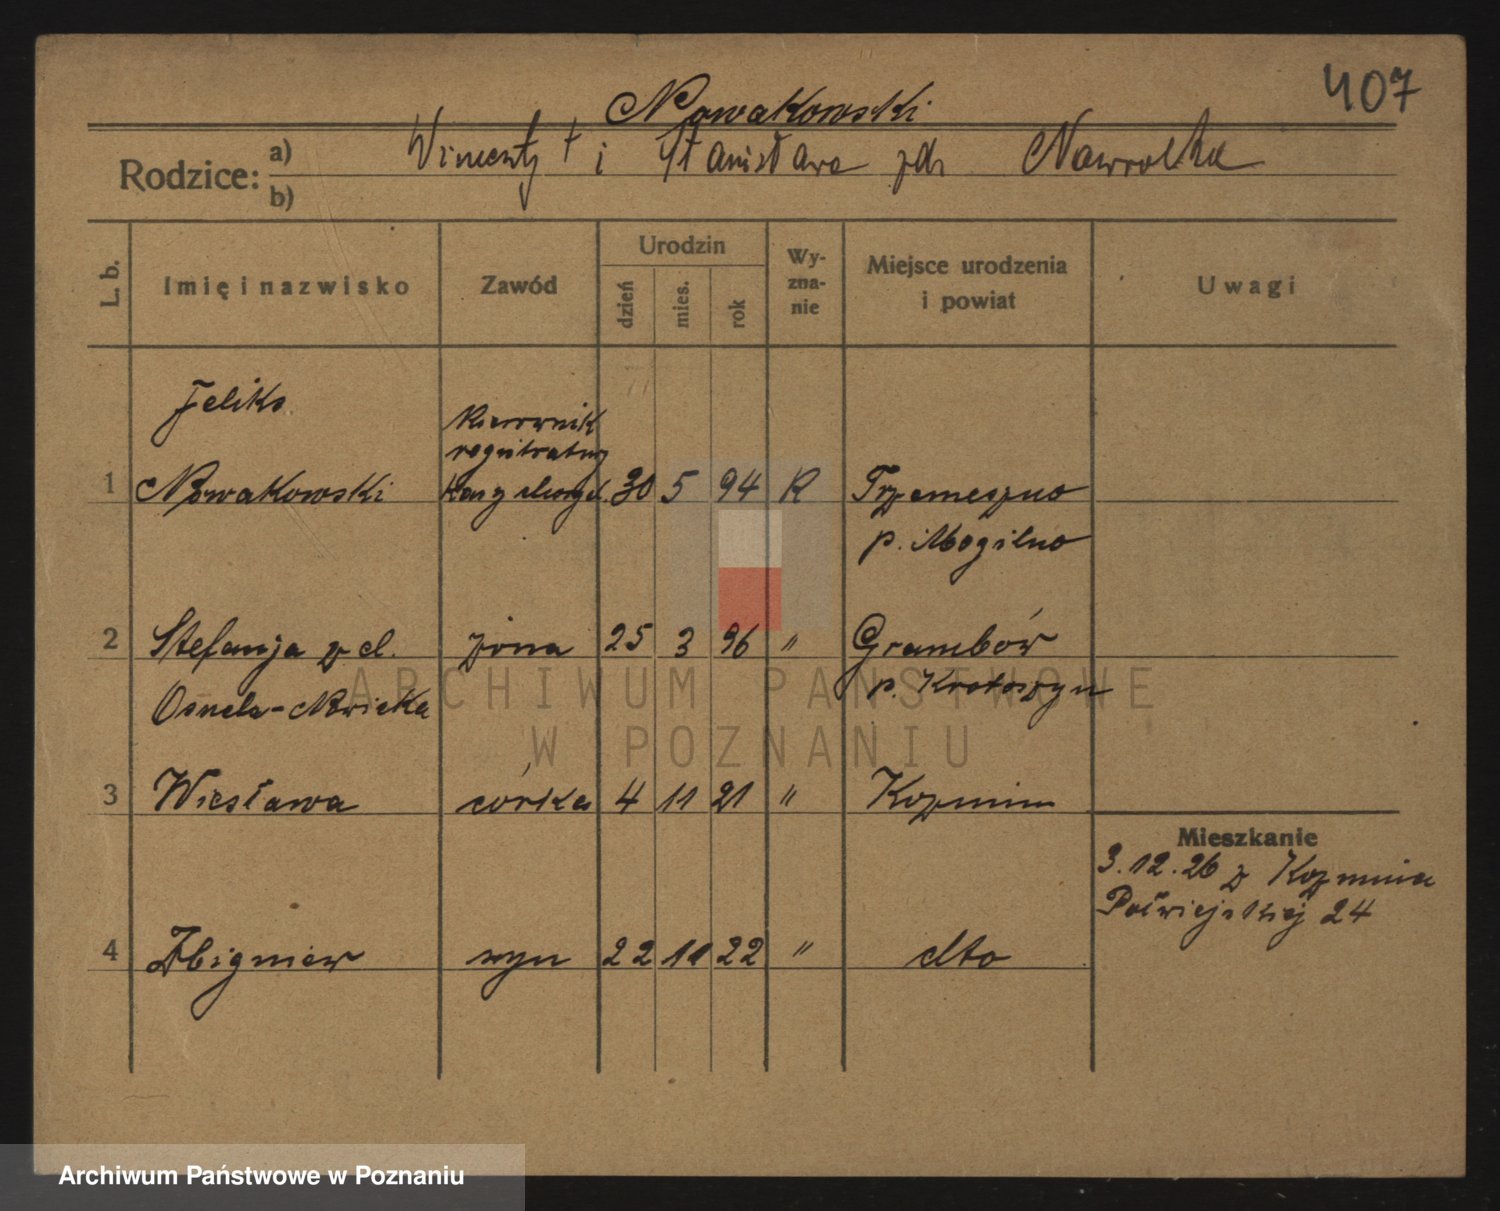 407
Nowakowski
Rodzice: a) Wincenty † i Stanisława zd. Nawrolska
b)
L. b. Imię i nazwisko Zawód Urodzin Wy-zna-nie Miejsce urodzenia i powiat Uwagi
dzień mies. rok
Feliks
Kierownik
registratury
1 Nowakowski Kasy 30 5 94 R Trzemeszno
p. Mogilno
2 Stefanja z d. żona 25 3 96 " Grambów
p. Krotoszyn
ARCHIWUM PAŃSTWOWE
W POZNANIU
3 Wiesława córka 4 11 21 " Kozmin
Mieszkanie
3.12.26 z Kozmina
24
4 Zbigniew syn 22 11 22 " dto
Archiwum Państwowe w Poznaniu